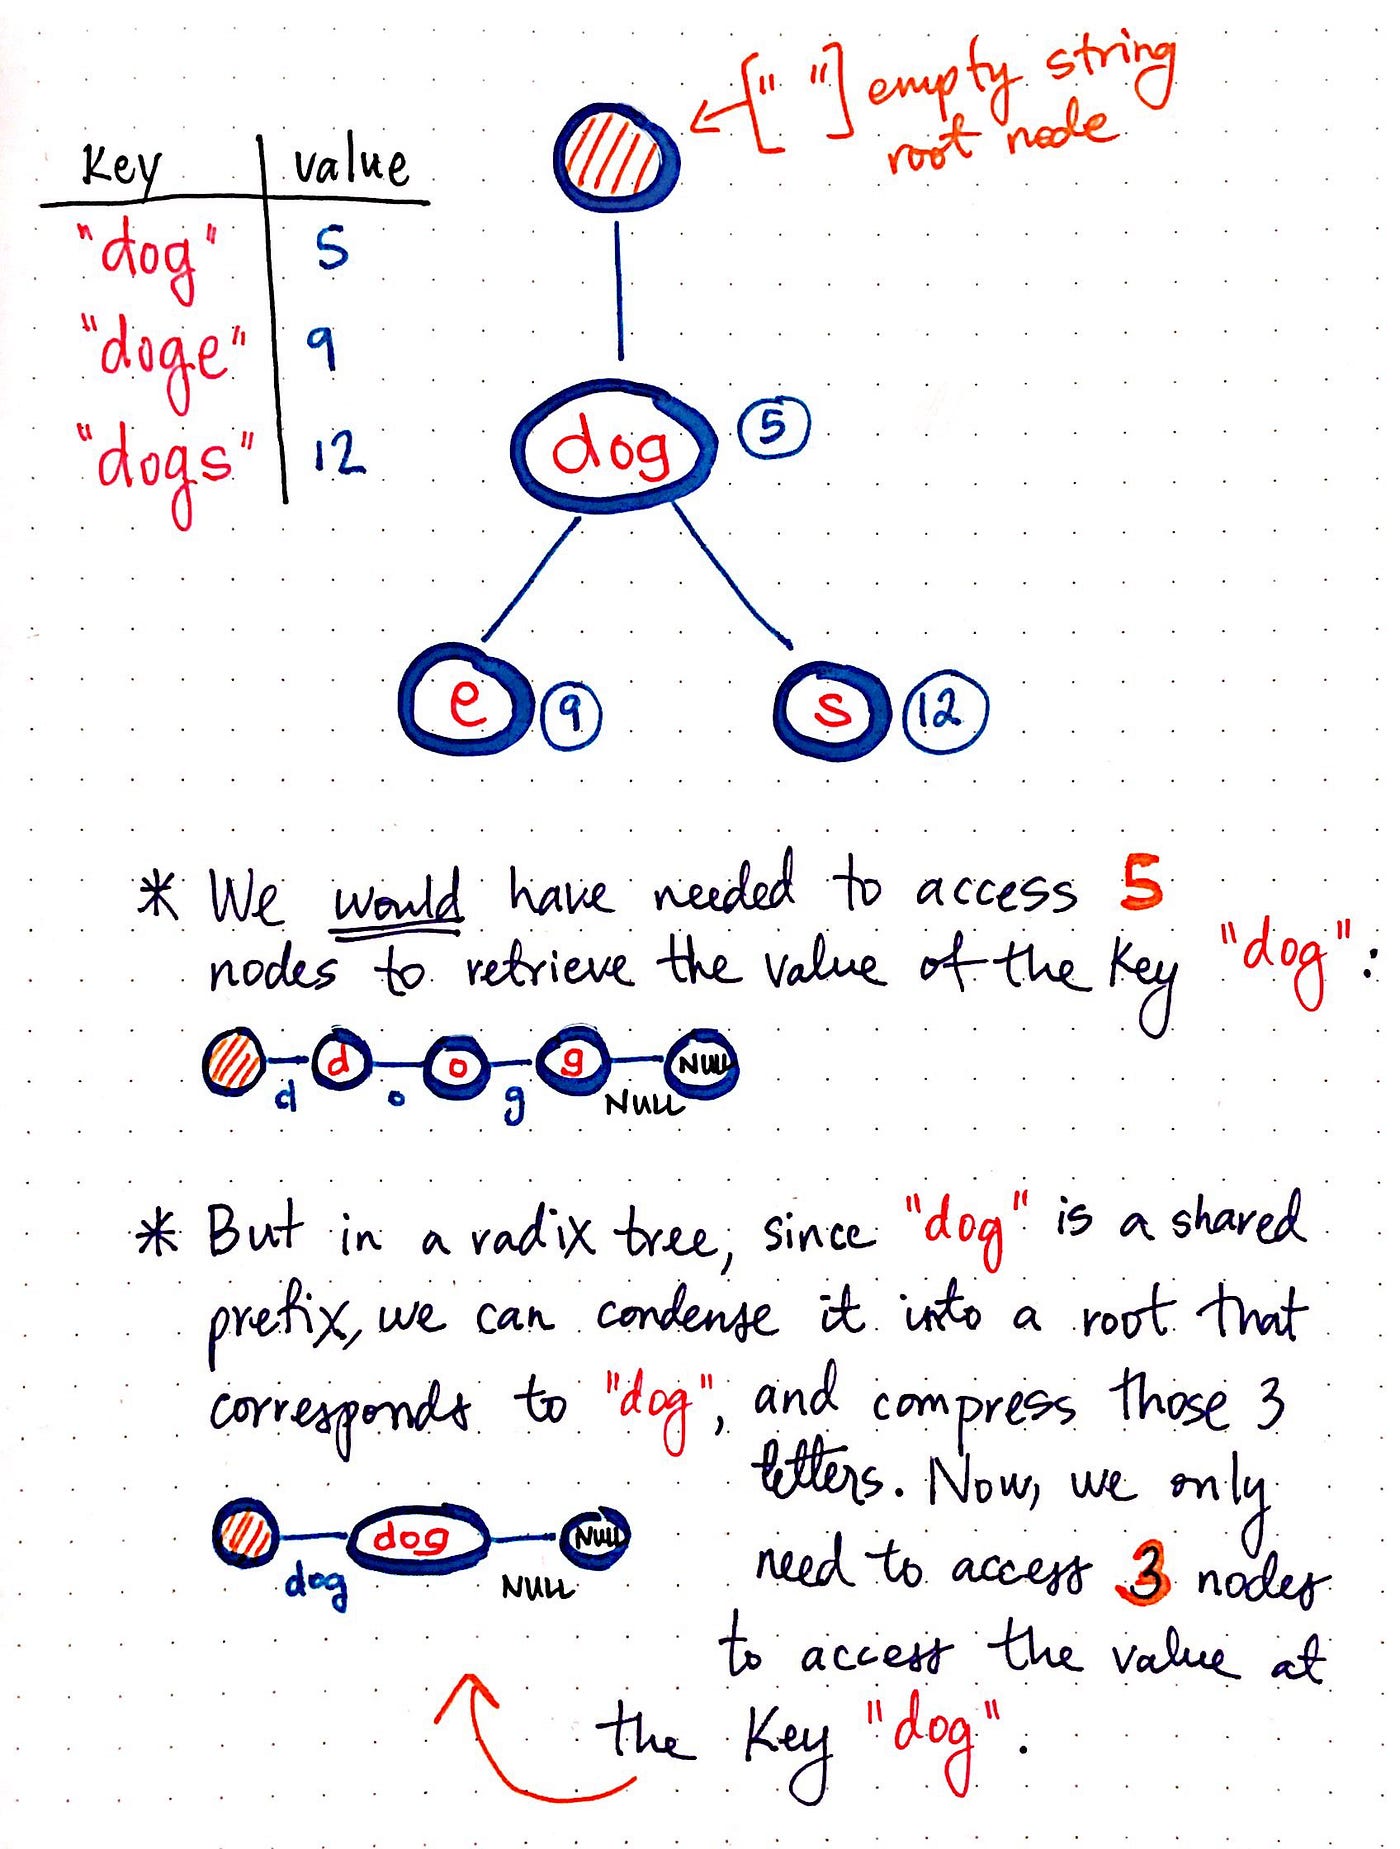 [" "] empty string
root node
Key value
"dog" 5
"doge" 9
"dogs" 12
dog 5
e 9 s 12
* We would have needed to access 5
nodes to retrieve the value of the key "dog":
d o g NULL
d o g NULL
* But in a radix tree, since "dog" is a shared
prefix, we can condense it into a root that
corresponds to "dog", and compress those 3
letters. Now, we only
dog NULL
dog NULL
need to access 3 nodes
to access the value at
the key "dog".